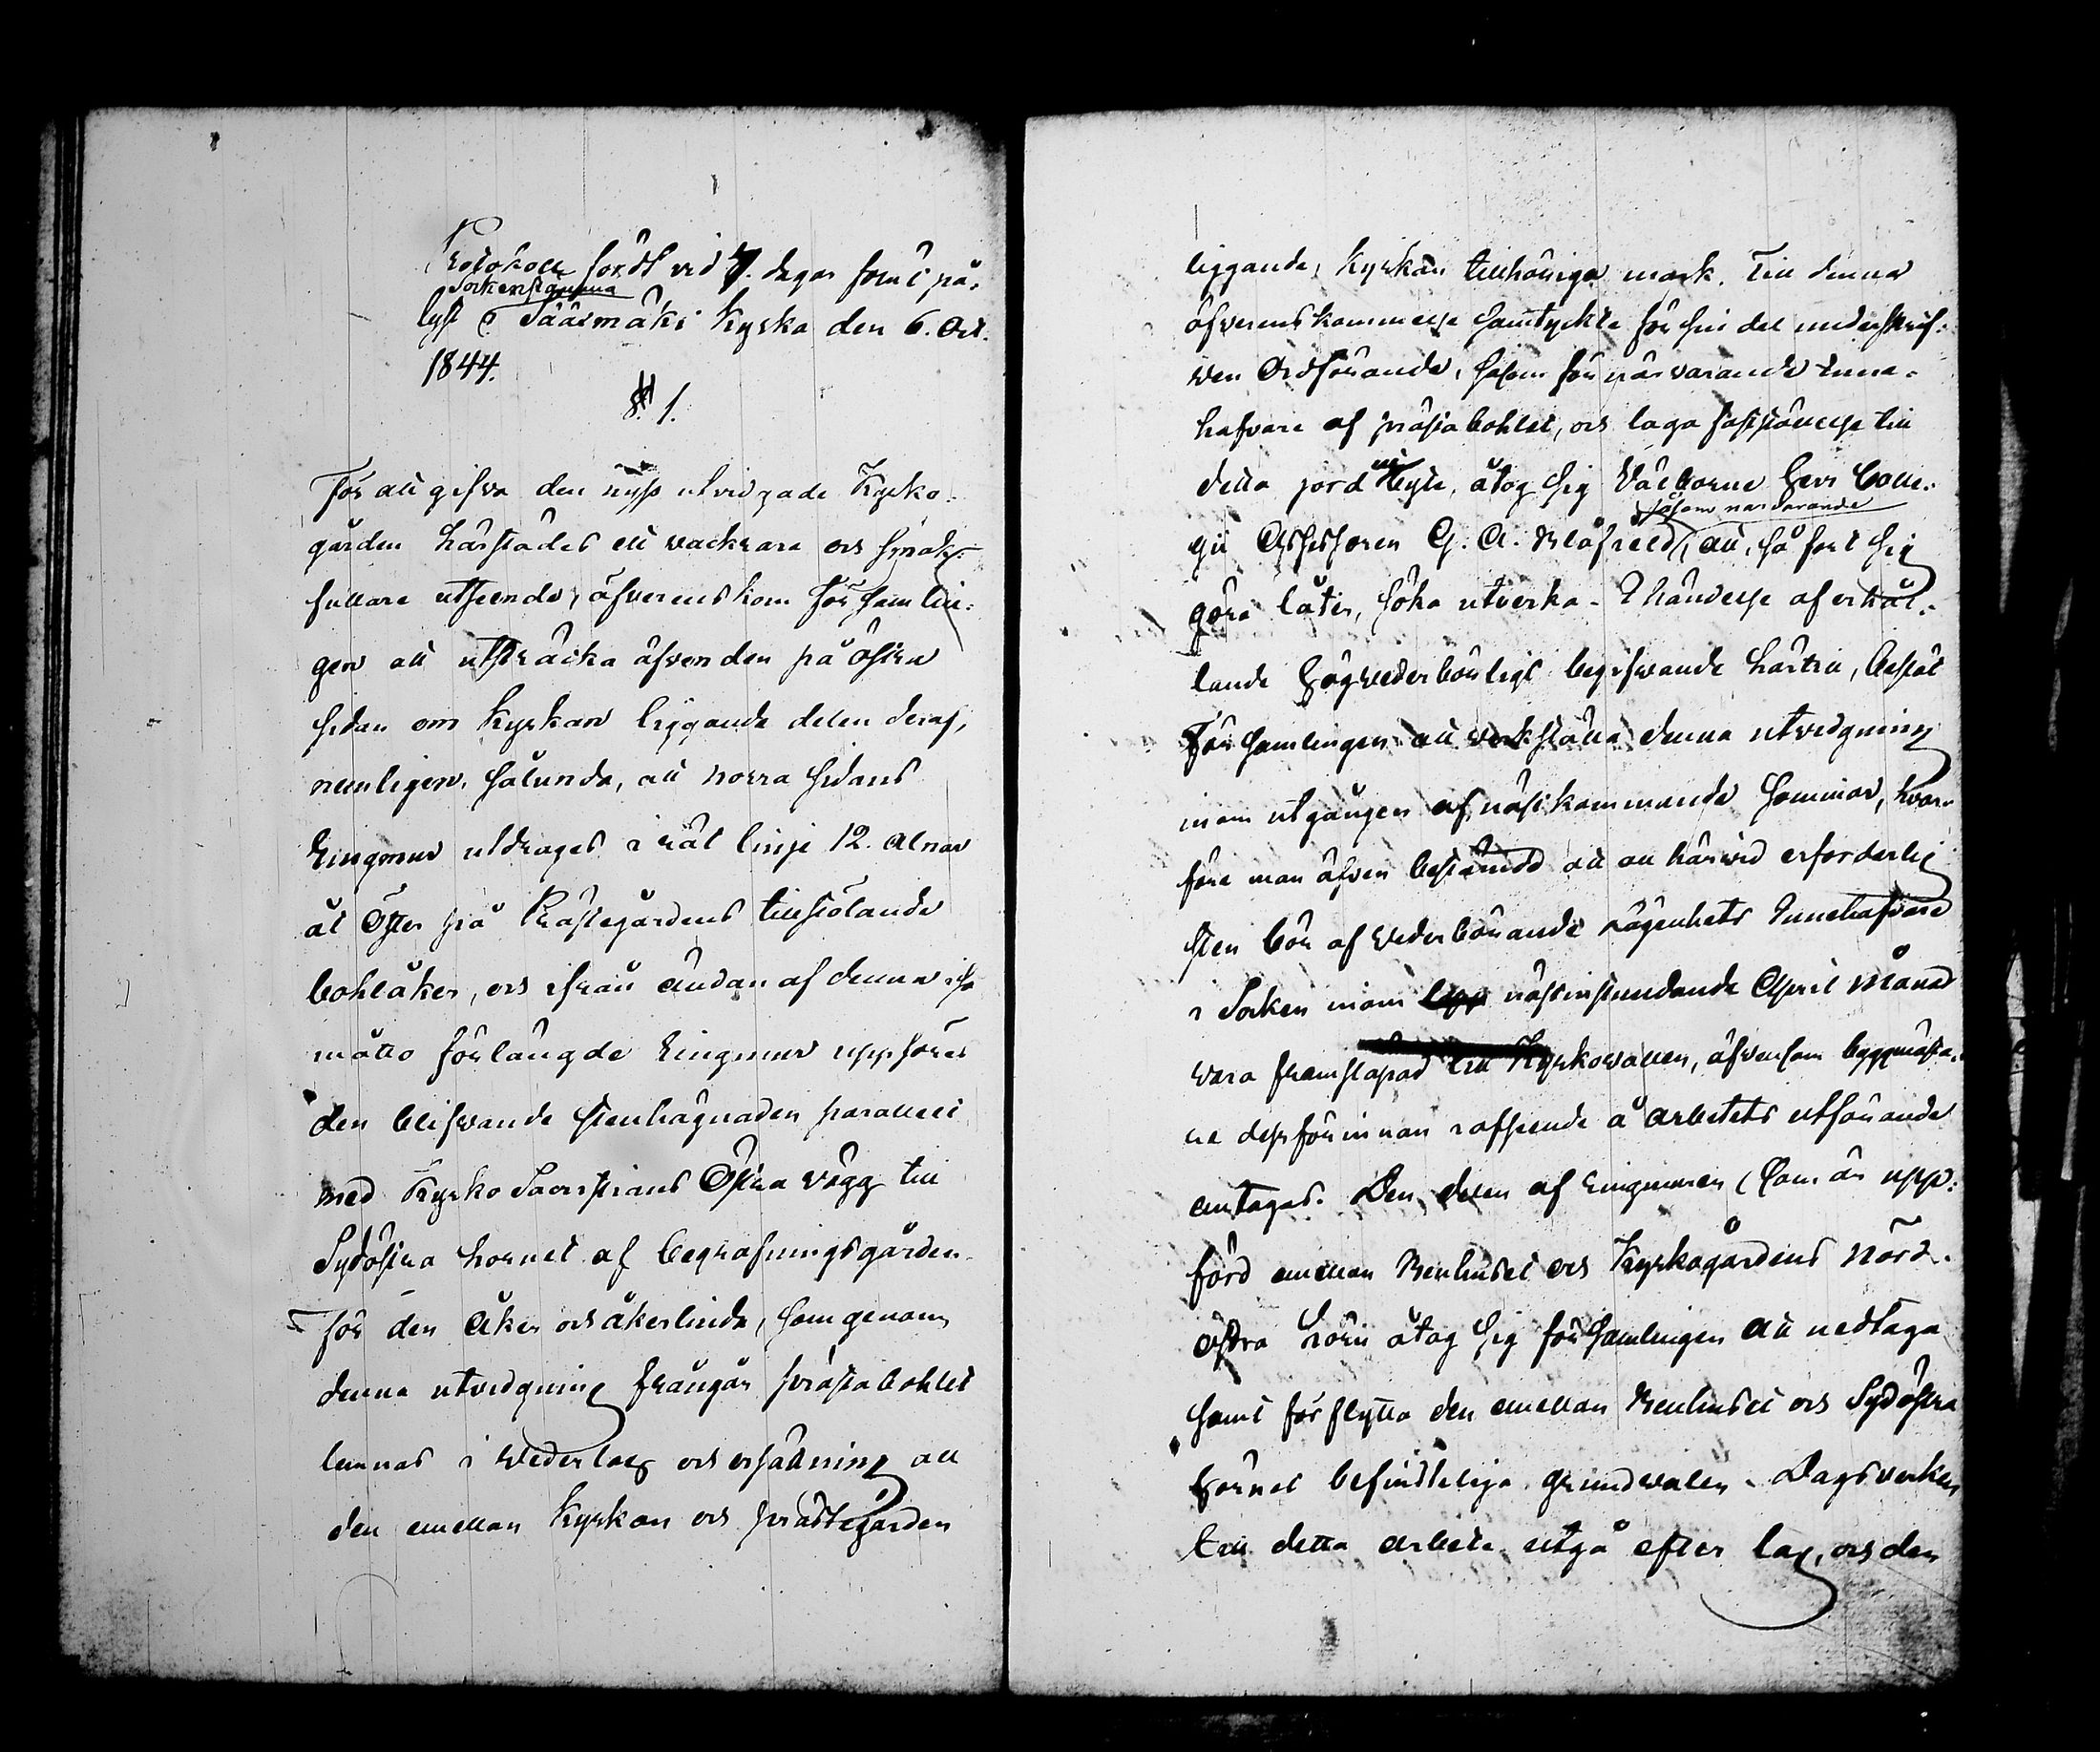 Protokoll fördt vid 7. dagar förut på-
Sockenstämma
lyst i Säärmäki Kyrka den 6. Oct.
1844.
§ 1.
För att gifva den nyss utvidgade Kyrko-
gården härstädes ett vackrare och smak-
fullare utseende, öfverenskom Församlin-
gen att utsträcka äfven den på östra
sidan om Kyrkan liggande delen deraf,
nemligen sålunda, att norra sidans
Ringmur utdrages i rät linje 12. alnar
åt Öster på Prästegårdens tillstötande
bohlåker, och ifrån ändan af denna så
måtto förlängde Ringmur uppföres
den blifvande stenhägnaden parallelt
med Kyrko Sacristians Östra vägg till
Sydöstra hornet af begrafningsgården.
För den åker och åkerlinda, som genom
denna utvidgning frångår prästabohlet
lemnas i Wederlag och ersättning all
den emellan Kyrkan och prästegården
liggande, Kyrkan tillhöriga mark. Till denna
öfverenskommelse samtyckte för sin del underskrif-
ven Ordförande, såsom för närvarande inne-
hafvare af prästabohlet, och laga fastställelse till
detta jord utbyte, åtog sig Välborne Herr Colle-
såsom närvarande
gii Assessoren G. A. Blåfield, att, så fort sig
göra låter, söka utverka. I händelse af erhål-
lande högvederbörligt begifwande härtill, beslöt
Församlingen att verkställa denna utvidgning
inom utgången af nästkommande Sommar, hvar-
före man äfven bestämde att all härvid erforderlig
sten bör af vederbörande lägenhets Innehafvare
i Socken inom nästinstundande April Månad
vara framsläpad till Kyrkovallen, äfvensom byggmästa-
re dessförinnan i afseende å arbetets utförande
antagas. Den delen af Ringmuren som är upp-
förd emellan Benhuset och Kyrkogårdens Nord-
östra hörn åtog sig församlingen att nedtaga
samt förflytta den emellan Benhuset och Sydöstra
hörnet befinteliga grundvalen. Dagsverken
till detta arbete utgå efter lag, och den